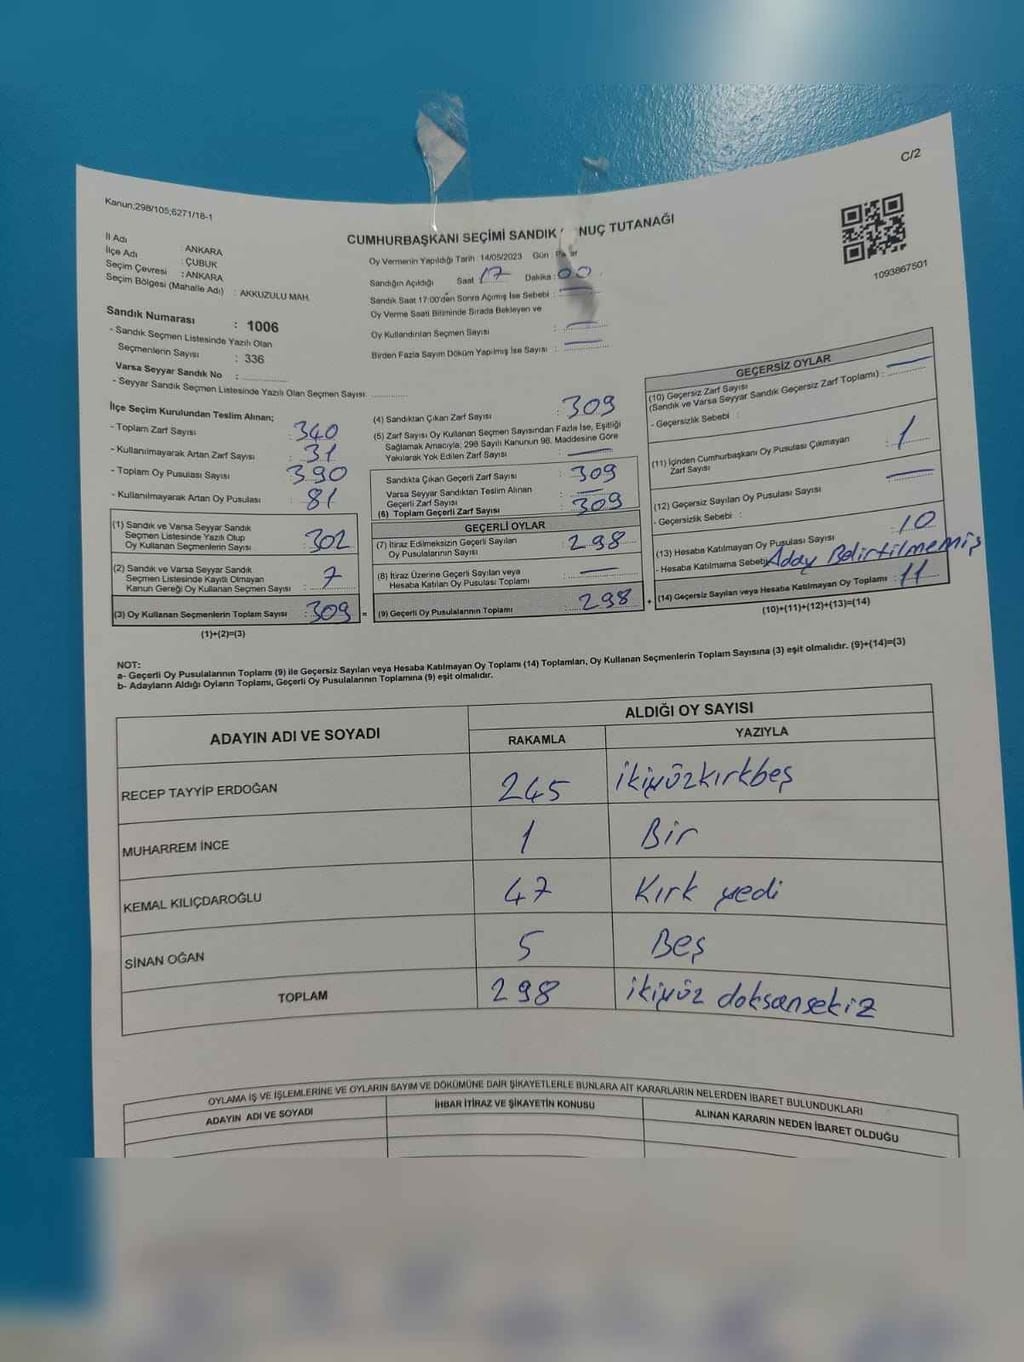 C/2
Kanun;298/105;6271/18-1
CUMHURBAŞKANI SEÇİMİ SANDIK NUÇ TUTANAĞI
İl Adı : ANKARA
İlçe Adı : ÇUBUK
Seçim Çevresi : ANKARA
Seçim Bölgesi (Mahalle Adı) : AKKUZULU MAH.
Sandık Numarası : 1006
- Sandık Seçmen Listesinde Yazılı Olan
Seçmenlerin Sayısı : 336
Varsa Seyyar Sandık No :
- Seyyar Sandık Seçmen Listesinde Yazılı Olan Seçmen Sayısı:
Oy Vermenin Yapıldığı Tarih : 14/05/2023 Gün
Sandığın Açıldığı Saat 17 Dakika : 00
Sandık Saat 17:00'den Sonra Açımış İse Sebebi :
Oy Verme Saati Bitiminde Sırada Bekleyen ve
Oy Kullandırılan Seçmen Sayısı :
Birden Fazla Sayım Döküm Yapılmış İse Sayısı :
1093867501
İlçe Seçim Kurulundan Teslim Alınan;
- Toplam Zarf Sayısı : 340
- Kullanılmayarak Artan Zarf Sayısı : 31
- Toplam Oy Pusulası Sayısı : 390
- Kullanılmayarak Artan Oy Pusulası : 81
(1) Sandık ve Varsa Seyyar Sandık
Seçmen Listesinde Yazılı Olup
Oy Kullanan Seçmenlerin Sayısı : 302
(2) Sandık ve Varsa Seyyar Sandık
Seçmen Listesinde Kayıtlı Olmayan
Kanun Gereği Oy Kullanan Seçmen Sayısı : 7
(3) Oy Kullanan Seçmenlerin Toplam Sayısı : 309 =
(1)+(2)=(3)
(4) Sandıktan Çıkan Zarf Sayısı : 309
(5) Zarf Sayısı Oy Kullanan Seçmen Sayısından Fazla İse, Eşitliği
Sağlamak Amacıyla, 298 Sayılı Kanunun 98. Maddesine Göre
Yakılarak Yok Edilen Zarf Sayısı :
Sandıkta Çıkan Geçerli Zarf Sayısı : 309
Varsa Seyyar Sandıktan Teslim Alınan
Geçerli Zarf Sayısı
(6) Toplam Geçerli Zarf Sayısı : 309
GEÇERLİ OYLAR
(7) İtiraz Edilmeksizin Geçerli Sayılan
Oy Pusulalarının Sayısı : 298
(8) İtiraz Üzerine Geçerli Sayılan veya
Hesaba Katılan Oy Pusulası Toplamı :
(9) Geçerli Oy Pusulalarının Toplamı : 298 +
GEÇERSİZ OYLAR
(10) Geçersiz Zarf Sayısı
(Sandık ve Varsa Seyyar Sandık Geçersiz Zarf Toplamı) :
- Geçersizlik Sebebi :
(11) İçinden Cumhurbaşkanı Oy Pusulası Çıkmayan
Zarf Sayısı : 1
(12) Geçersiz Sayılan Oy Pusulası Sayısı
- Geçersizlik Sebebi :
(13) Hesaba Katılmayan Oy Pusulası Sayısı : 10
- Hesaba Katılmama Sebebi: Aday Belirtilmemiş
(14) Geçersiz Sayılan veya Hesaba Katılmayan Oy Toplamı : 11
(10)+(11)+(12)+(13)=(14)
NOT:
a- Geçerli Oy Pusulalarının Toplamı (9) ile Geçersiz Sayılan veya Hesaba Katılmayan Oy Toplamı (14) Toplamları, Oy Kullanan Seçmenlerin Toplam Sayısına (3) eşit olmalıdır. (9)+(14)=(3)
b- Adayların Aldığı Oyların Toplamı, Geçerli Oy Pusulalarının Toplamına (9) eşit olmalıdır.
ADAYIN ADI VE SOYADI ALDIĞI OY SAYISI
RAKAMLA YAZIYLA
RECEP TAYYİP ERDOĞAN 245 ikiyüzkırkbeş
MUHARREM İNCE 1 Bir
KEMAL KILIÇDAROĞLU 47 Kırk yedi
SİNAN OĞAN 5 Beş
TOPLAM 298 ikiyüz doksansekiz
OYLAMA İŞ VE İŞLEMLERİNE VE OYLARIN SAYIM VE DÖKÜMÜNE DAİR ŞİKAYETLERLE BUNLARA AİT KARARLARIN NELERDEN İBARET BULUNDUKLARI
ADAYIN ADI VE SOYADI İHBAR İTİRAZ VE ŞİKAYETİN KONUSU ALINAN KARARIN NEDEN İBARET OLDUĞU